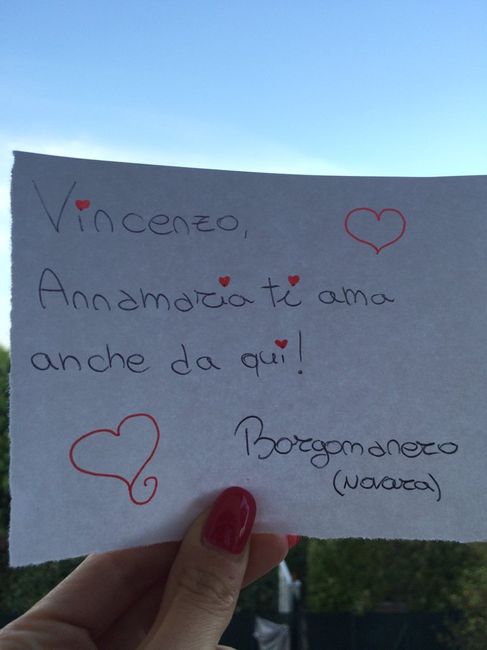 Vincenzo,
Annamaria ti ama
anche da qui!
Borgomanero
(Novara)